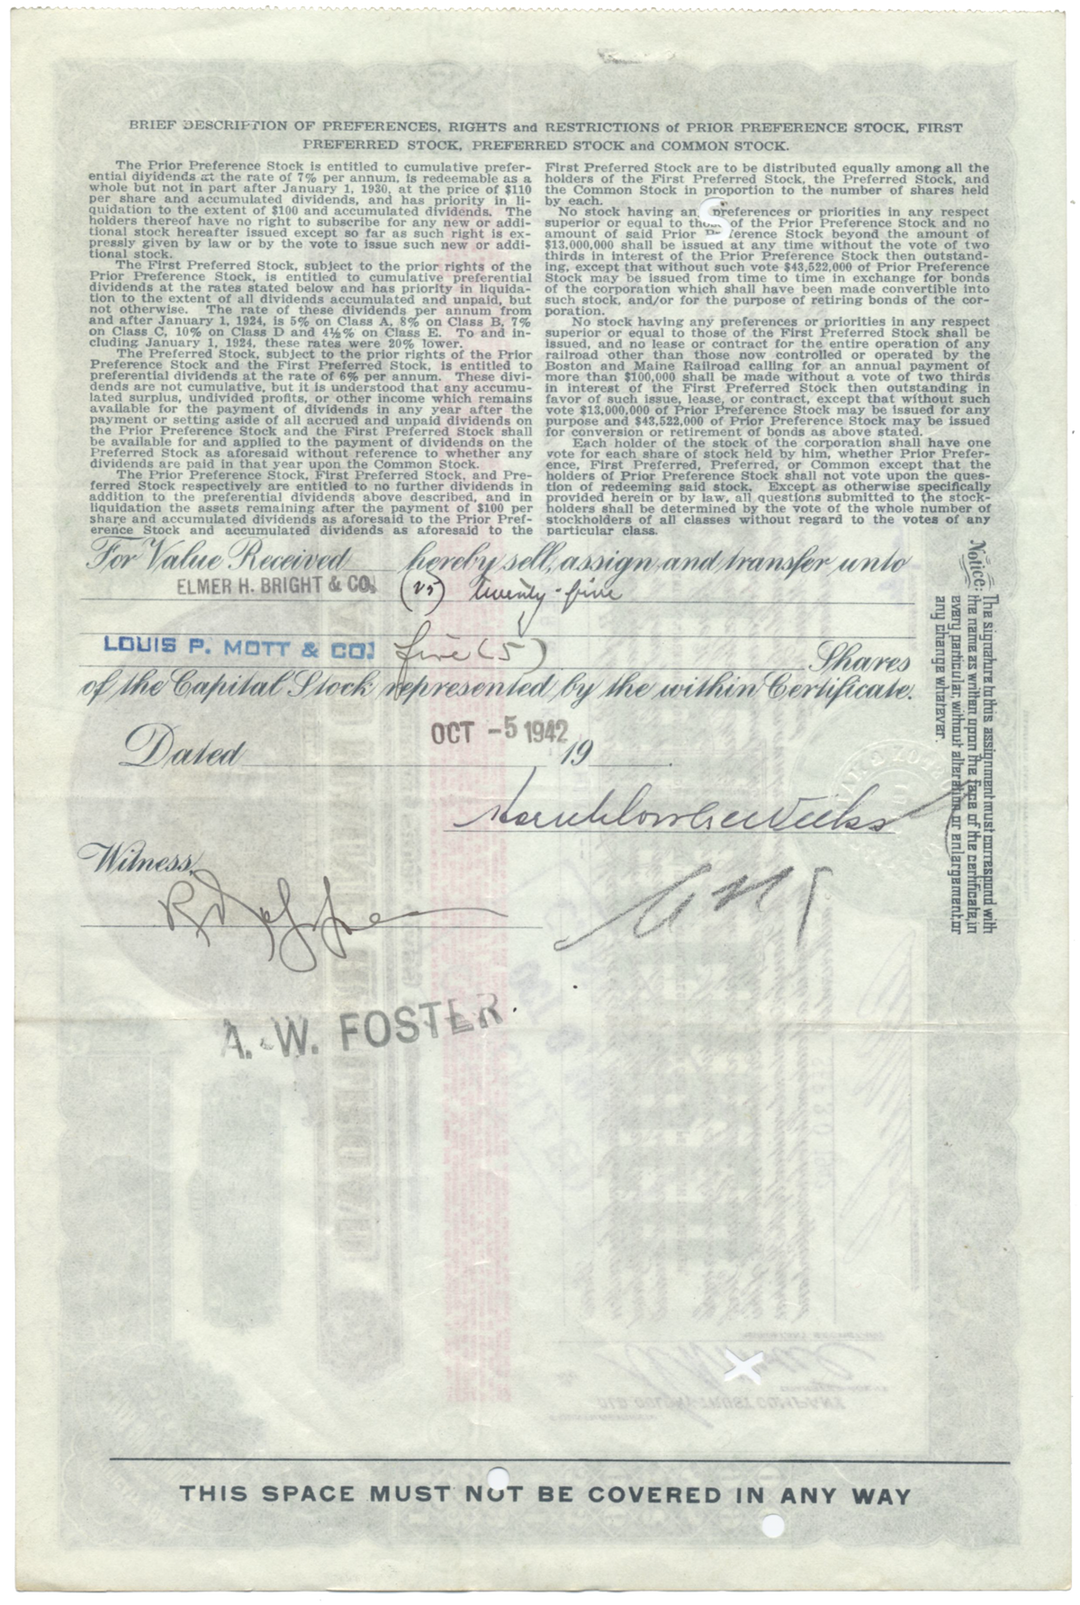 BRIEF DESCRIPTION OF PREFERENCES, RIGHTS and RESTRICTIONS of PRIOR PREFERENCE STOCK, FIRST
PREFERRED STOCK, PREFERRED STOCK and COMMON STOCK.
The Prior Preference Stock is entitled to cumulative prefer-
ential dividends at the rate of 7% per annum, is redeemable as a
whole but not in part after January 1, 1930, at the price of $110
per share and accumulated dividends, and has priority in li-
quidation to the extent of $100 and accumulated dividends. The
holders thereof have no right to subscribe for any new or addi-
tional stock hereafter issued except so far as such right is ex-
pressly given by law or by the vote to issue such new or addi-
tional stock.
The First Preferred Stock, subject to the prior rights of the
Prior Preference Stock, is entitled to cumulative preferential
dividends at the rates stated below and has priority in liquida-
tion to the extent of all dividends accumulated and unpaid, but
not otherwise. The rate of these dividends per annum from
and after January 1, 1924, is 5% on Class A, 8% on Class B, 7%
on Class C, 10% on Class D and 4½% on Class E. To and in-
cluding January 1, 1924, these rates were 20% lower.
The Preferred Stock, subject to the prior rights of the Prior
Preference Stock and the First Preferred Stock, is entitled to
preferential dividends at the rate of 6% per annum. These divi-
dends are not cumulative, but it is understood that any accumu-
lated surplus, undivided profits, or other income which remains
available for the payment of dividends in any year after the
payment or setting aside of all accrued and unpaid dividends on
the Prior Preference Stock and the First Preferred Stock shall
be available for and applied to the payment of dividends on the
Preferred Stock as aforesaid without reference to whether any
dividends are paid in that year upon the Common Stock.
The Prior Preference Stock, First Preferred Stock, and Pre-
ferred Stock respectively are entitled to no further dividends in
addition to the preferential dividends above described, and in
liquidation the assets remaining after the payment of $100 per
share and accumulated dividends as aforesaid to the Prior Pref-
erence Stock and accumulated dividends as aforesaid to the
First Preferred Stock are to be distributed equally among all the
holders of the First Preferred Stock, the Preferred Stock, and
the Common Stock in proportion to the number of shares held
by each.
No stock having an preferences or priorities in any respect
superior or equal to those of the Prior Preference Stock and no
amount of said Prior Preference Stock beyond the amount of
$13,000,000 shall be issued at any time without the vote of two
thirds in interest of the Prior Preference Stock then outstand-
ing, except that without such vote $43,522,000 of Prior Preference
Stock may be issued from time to time in exchange for bonds
of the corporation which shall have been made convertible into
such stock, and/or for the purpose of retiring bonds of the cor-
poration.
No stock having any preferences or priorities in any respect
superior or equal to those of the First Preferred Stock shall be
issued, and no lease or contract for the entire operation of any
railroad other than those now controlled or operated by the
Boston and Maine Railroad calling for an annual payment of
more than $100,000 shall be made without a vote of two thirds
in interest of the First Preferred Stock then outstanding in
favor of such issue, lease, or contract, except that without such
vote $13,000,000 of Prior Preference Stock may be issued for any
purpose and $43,522,000 of Prior Preference Stock may be issued
for conversion or retirement of bonds as above stated.
Each holder of the stock of the corporation shall have one
vote for each share of stock held by him, whether Prior Prefer-
ence, First Preferred, Preferred, or Common except that the
holders of Prior Preference Stock shall not vote upon the ques-
tion of redeeming said stock. Except as otherwise specifically
provided herein or by law, all questions submitted to the stock-
holders shall be determined by the vote of the whole number of
stockholders of all classes without regard to the votes of any
particular class.
For Value Received hereby sell, assign and transfer unto
ELMER H. BRIGHT & CO. (25) twenty-five
LOUIS P. MOTT & CO. five (5) Shares
of the Capital Stock represented by the within Certificate.
OCT -5 1942
Dated 19
Witness
A. W. FOSTER.
Notice: The signature to this assignment must correspond with
the name as written upon the face of the certificate, in
every particular, without alteration or enlargement, or
any change whatever.
THIS SPACE MUST NOT BE COVERED IN ANY WAY